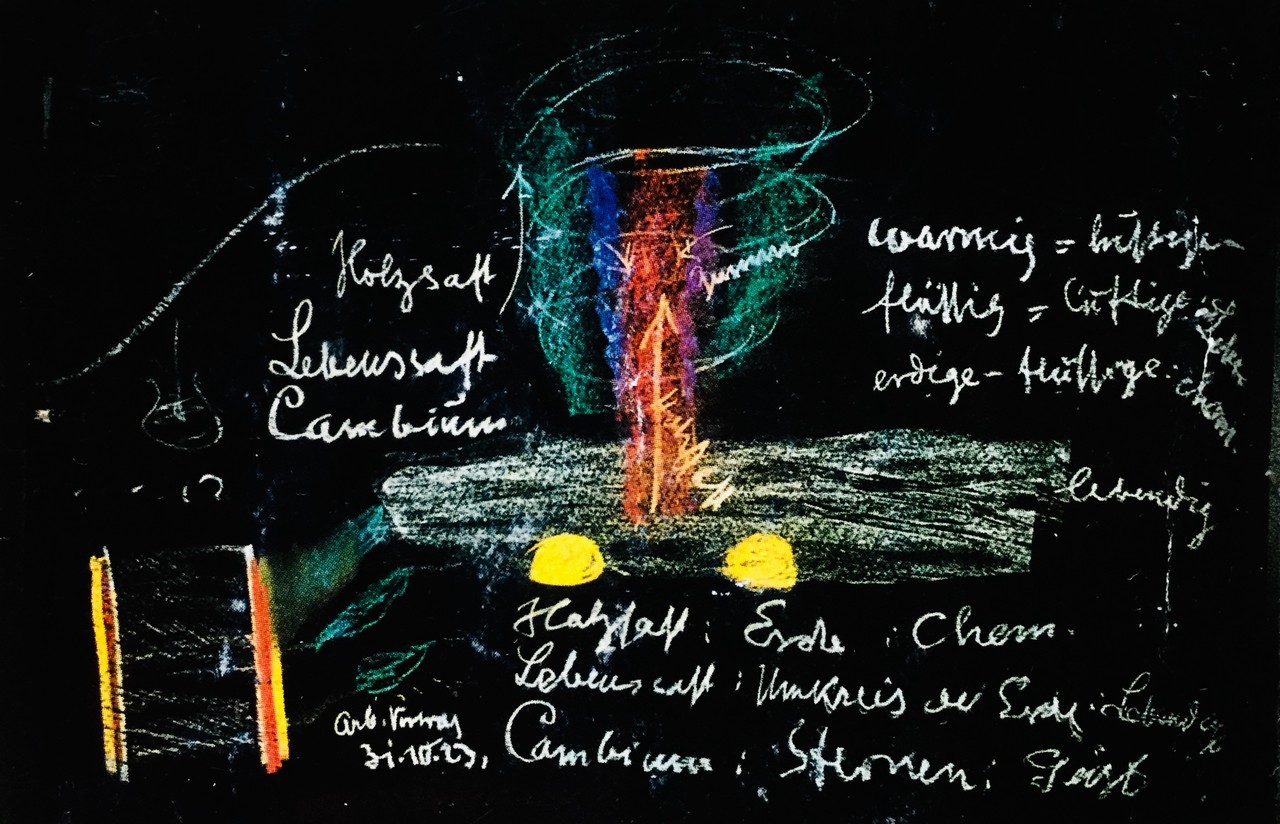 Holzsaft
Lebenssaft
Cambium
warmig = luftige
flüssig = luftige
erdige - flüssige
Chem
lebendig
Holzsaft : Erde : Chem.
Lebenssaft : Umkreis der Erde : Lebendig
Cambium : Sternen : Geist
Arb. Vortrag
31.10.23.